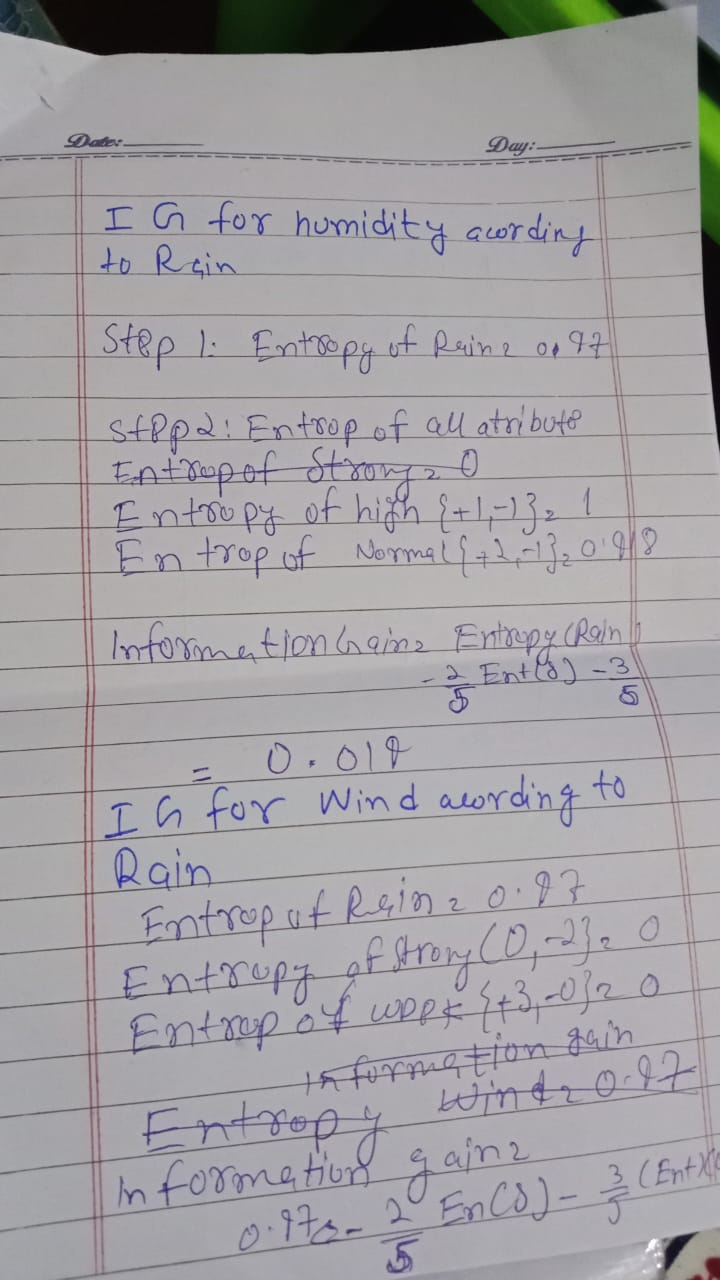 Date:
Day:
I G for humidity acording
to Rain
Step 1: Entropy of Rain = 0.97
Stepp2: Entrop of all atribute
Entropof Strong = 0
Entropy of high {+1,-1} = 1
Entrop of Normal {+2,-1} = 0.918
Information Gain = Entropy (Rain)
- 2/5 Ent(8) - 3/5
= 0.019
I G for Wind acording to
Rain
Entrop of Rain = 0.97
Entropy of Strong (0,-2} = 0
Entrop of week {+3,-0} = 0
Information gain
Entropy Wind = 0.97
Information gain =
0.970 - 2/5 En(8) - 3/5 (Ent)